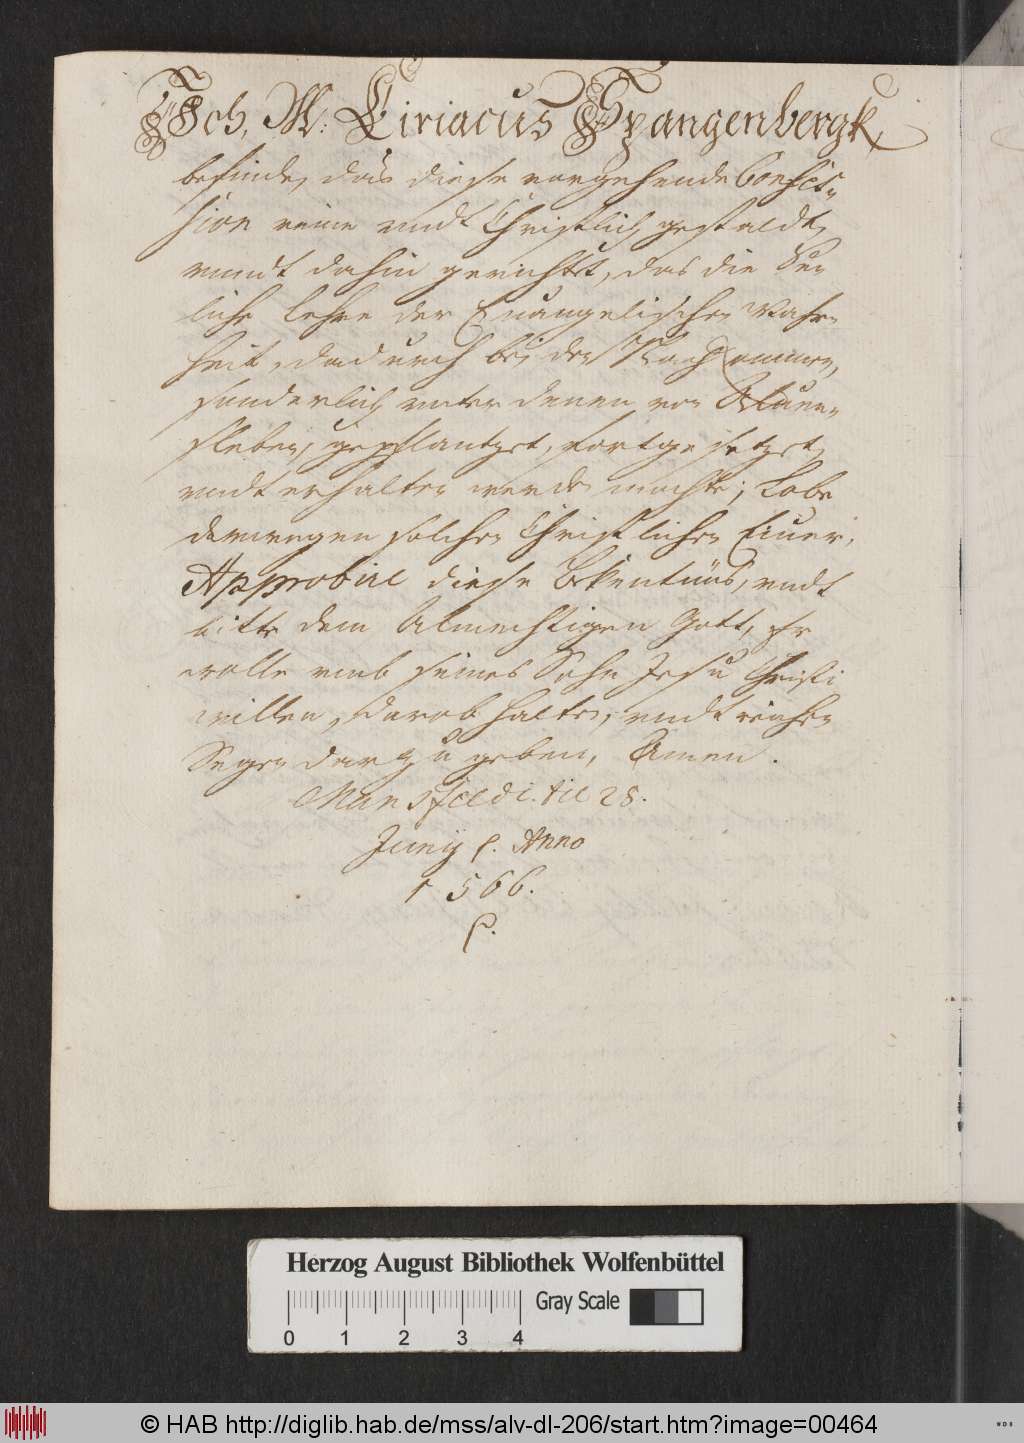 Ich, M: Ciriacus Spangenbergk,
befinde, das diese vorgehende Confes-
sion reine undt Christlich gestaldt,
unndt dahin gerichtet, das die
liche Lehre der Euangelischen Wahr-
heit, dadurch bei den Nachkommen,
sonderlich unter denen von Aluen-
sleben, gepflantzet, fortgesetzet,
undt erhalten werde mochte; Lobe
derwegen solchen Christlichen Eiuer,
Approbire diese Bekentnüs, undt
bitte dem Almechtigen Gott, Er
wolle umb seines Sohn Jesu Christi
willen, darob halten, undt reichen
Segen darzu geben, Amen.
Mansfeldi. die 28.
Junij p. Anno
1566.
p.
Herzog August Bibliothek Wolfenbüttel
Gray Scale
0 1 2 3 4
© HAB http://diglib.hab.de/mss/alv-dl-206/start.htm?image=00464